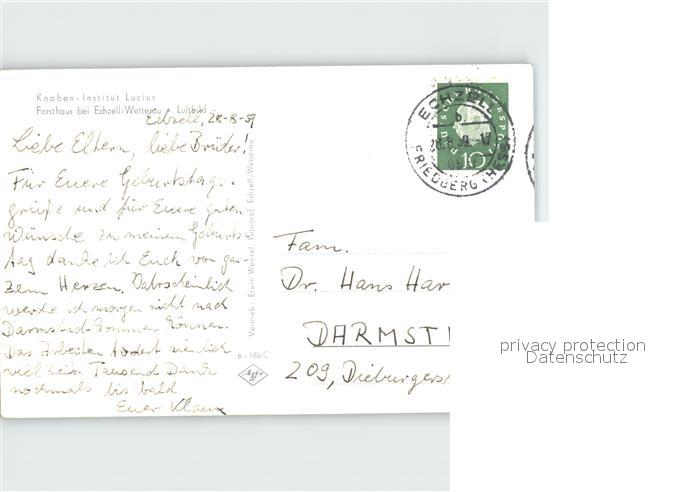 Knaben-Institut Lucius
Forsthaus bei Echzell/Wetterau • Luftbild
Echzell, 28-8-59
Liebe Eltern, liebe Brüder!
Für Euere Geburtstags-
grüße und für Euere guten
Wünsche zu meinem Geburts-
tag danke ich Euch von gan-
zem Herzen. Wahrscheinlich
werde ich morgen nicht nach
Darmstadt kommen können.
Das Arbeiten fordert ziemlich
viel Zeit. Tausend Dank
nochmals bis bald
Euer Klaus
Vertrieb: Erwin Wenzel, Echzell-Wetterau
6/186 C
Agfa
ECHZELL
b
28.8.59.-17
FRIEDBERG (HESS
DEUTSCHE BUNDESPOST
10
Fam.
Dr. Hans Har
DARMST
209, Dieburgers
privacy protection
Datenschutz